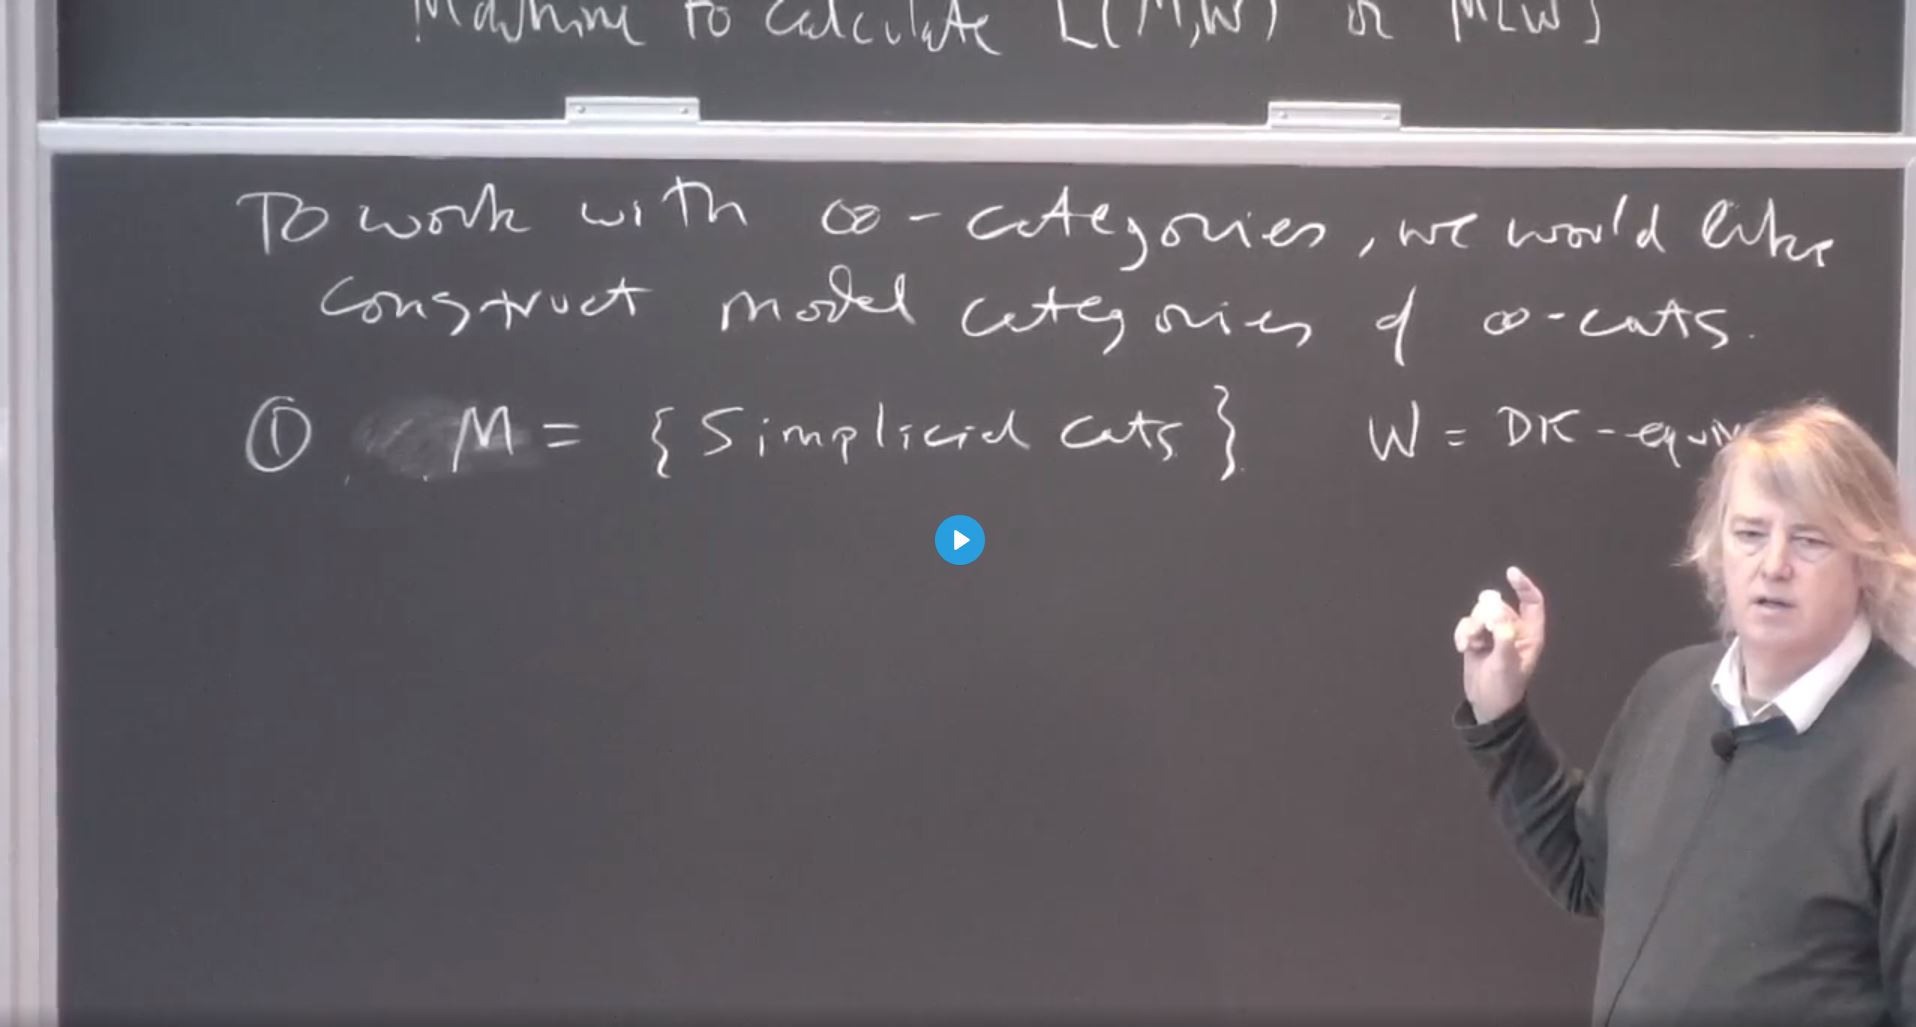 Machine to calculate L(M,W) or M[W]
To work with ∞-categories, we would like
construct model categories of ∞-cats.
① M = {Simplicial cats} W = DK-equiv